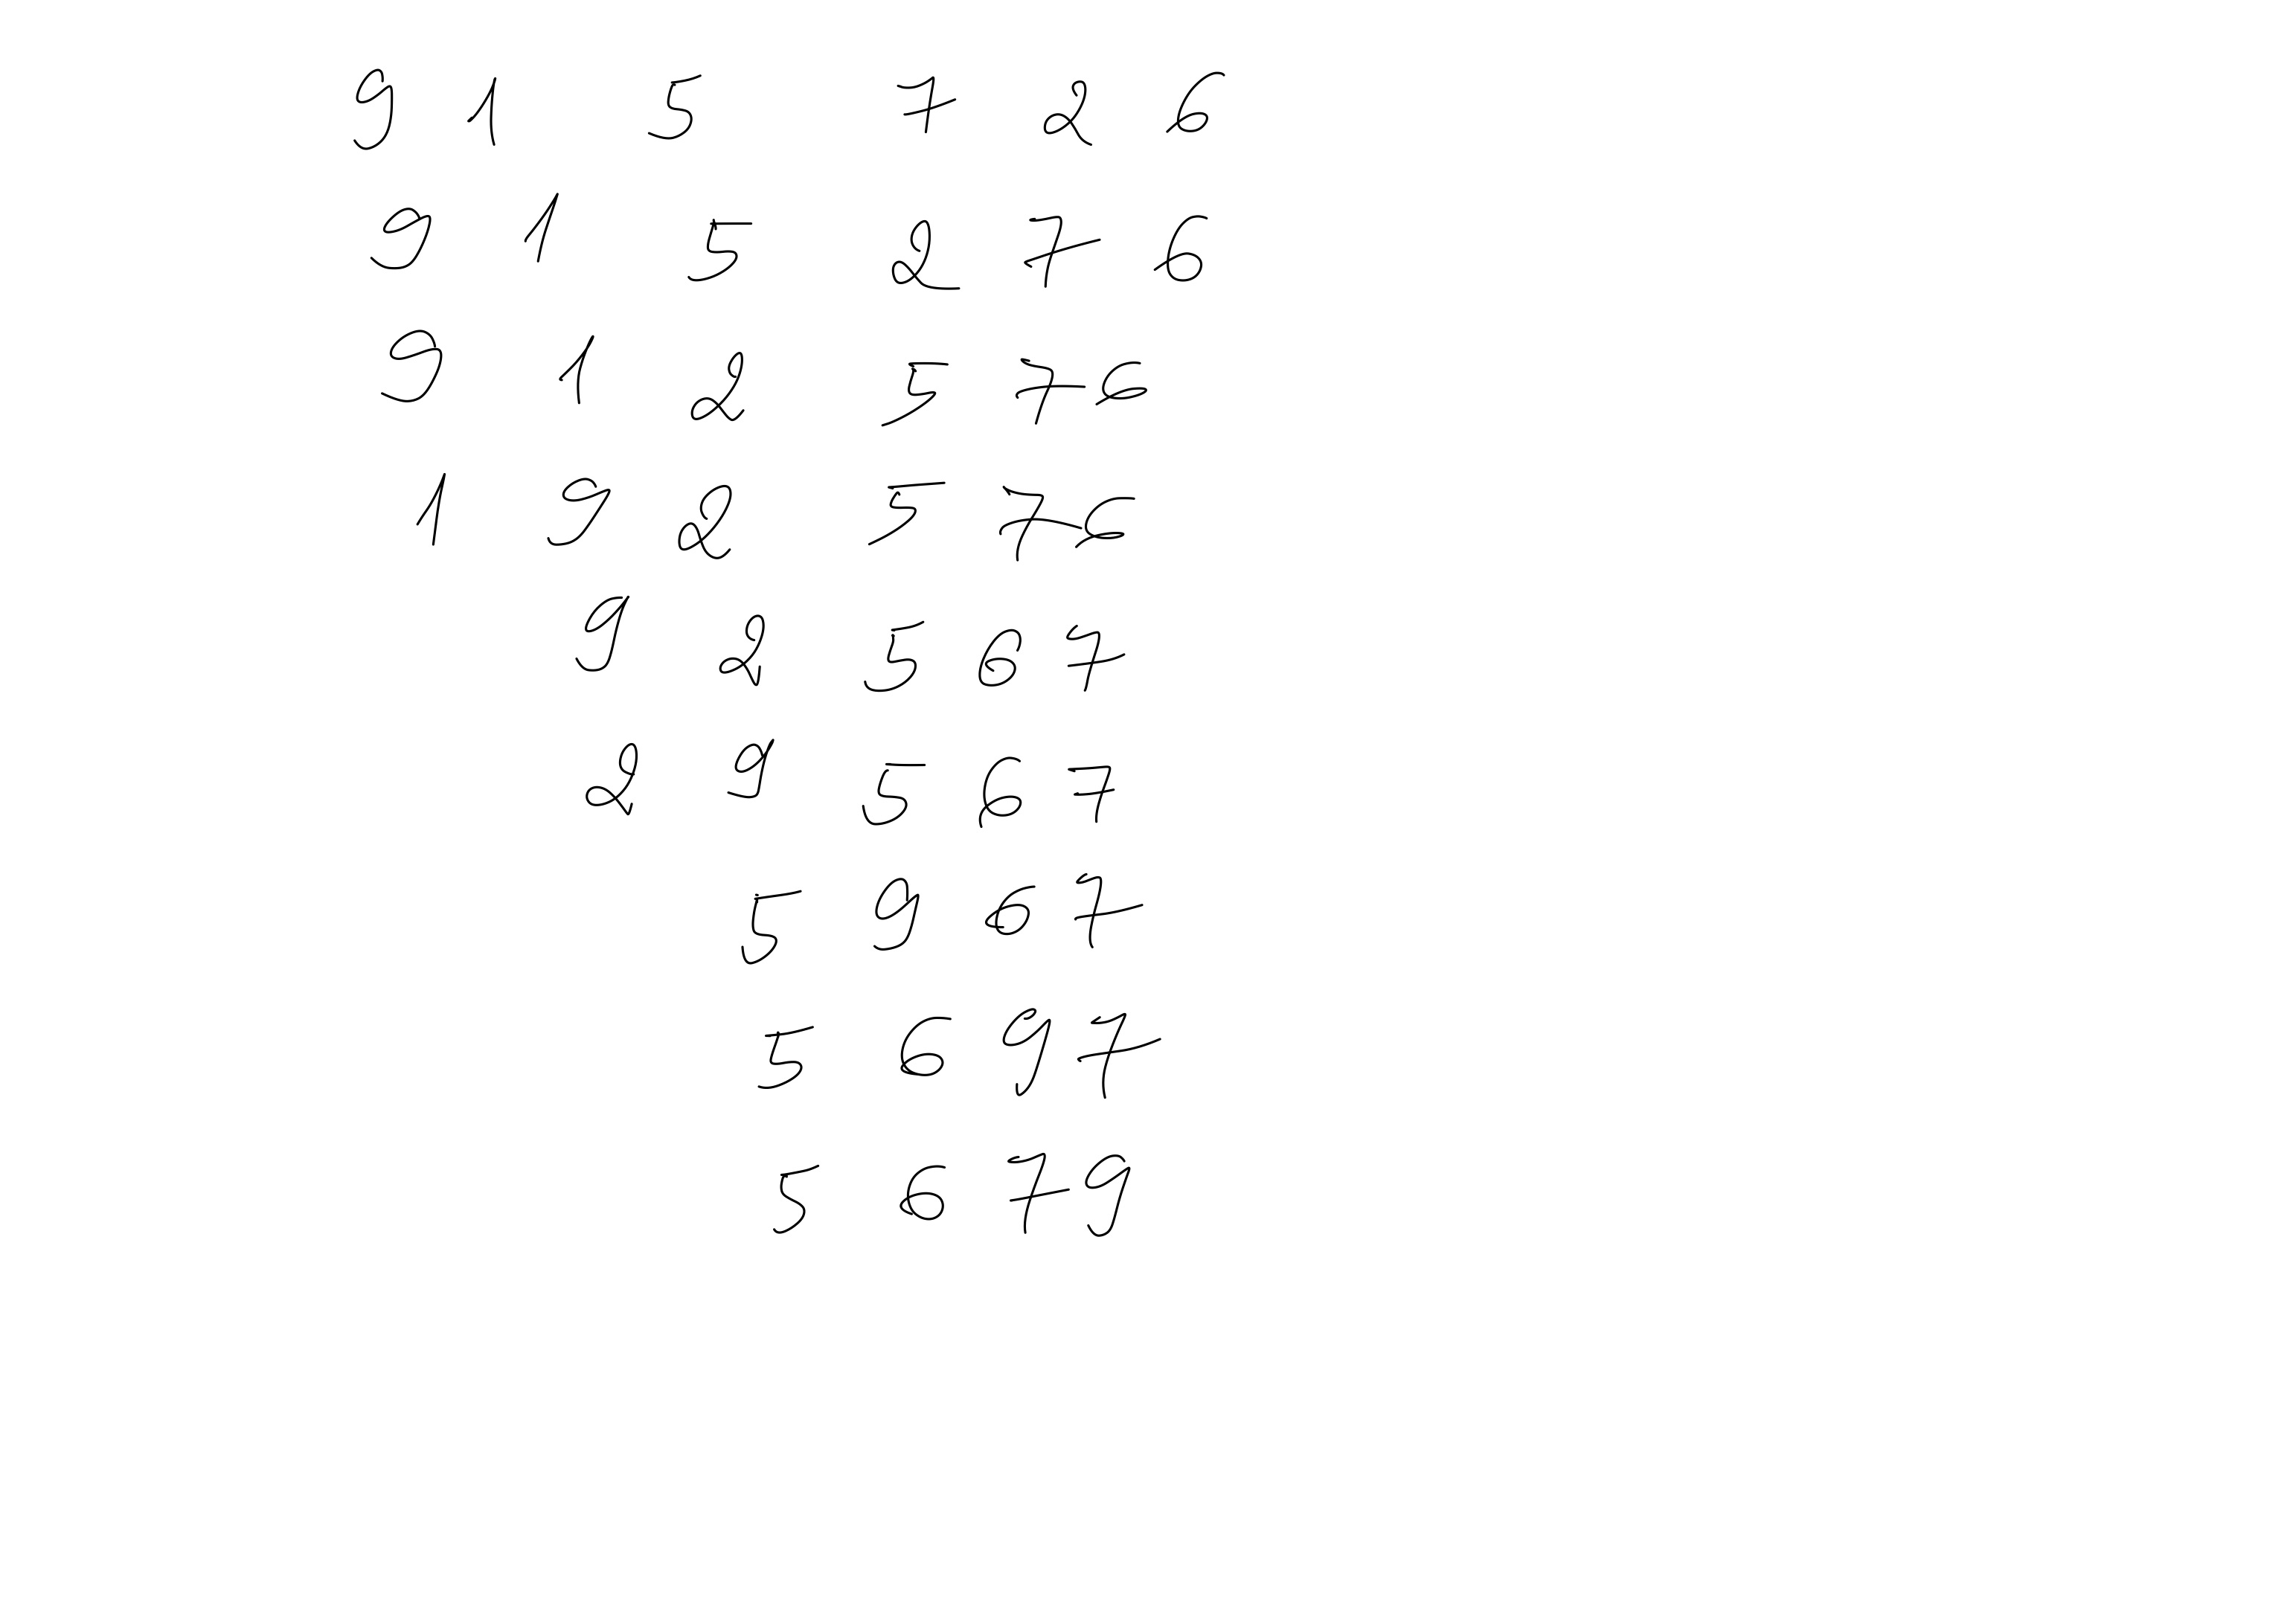 9 1 5 7 2 6
9 1 5 2 7 6
9 1 2 5 7 6
1 9 2 5 7 6
9 2 5 6 7
2 9 5 6 7
5 9 6 7
5 6 9 7
5 6 7 9